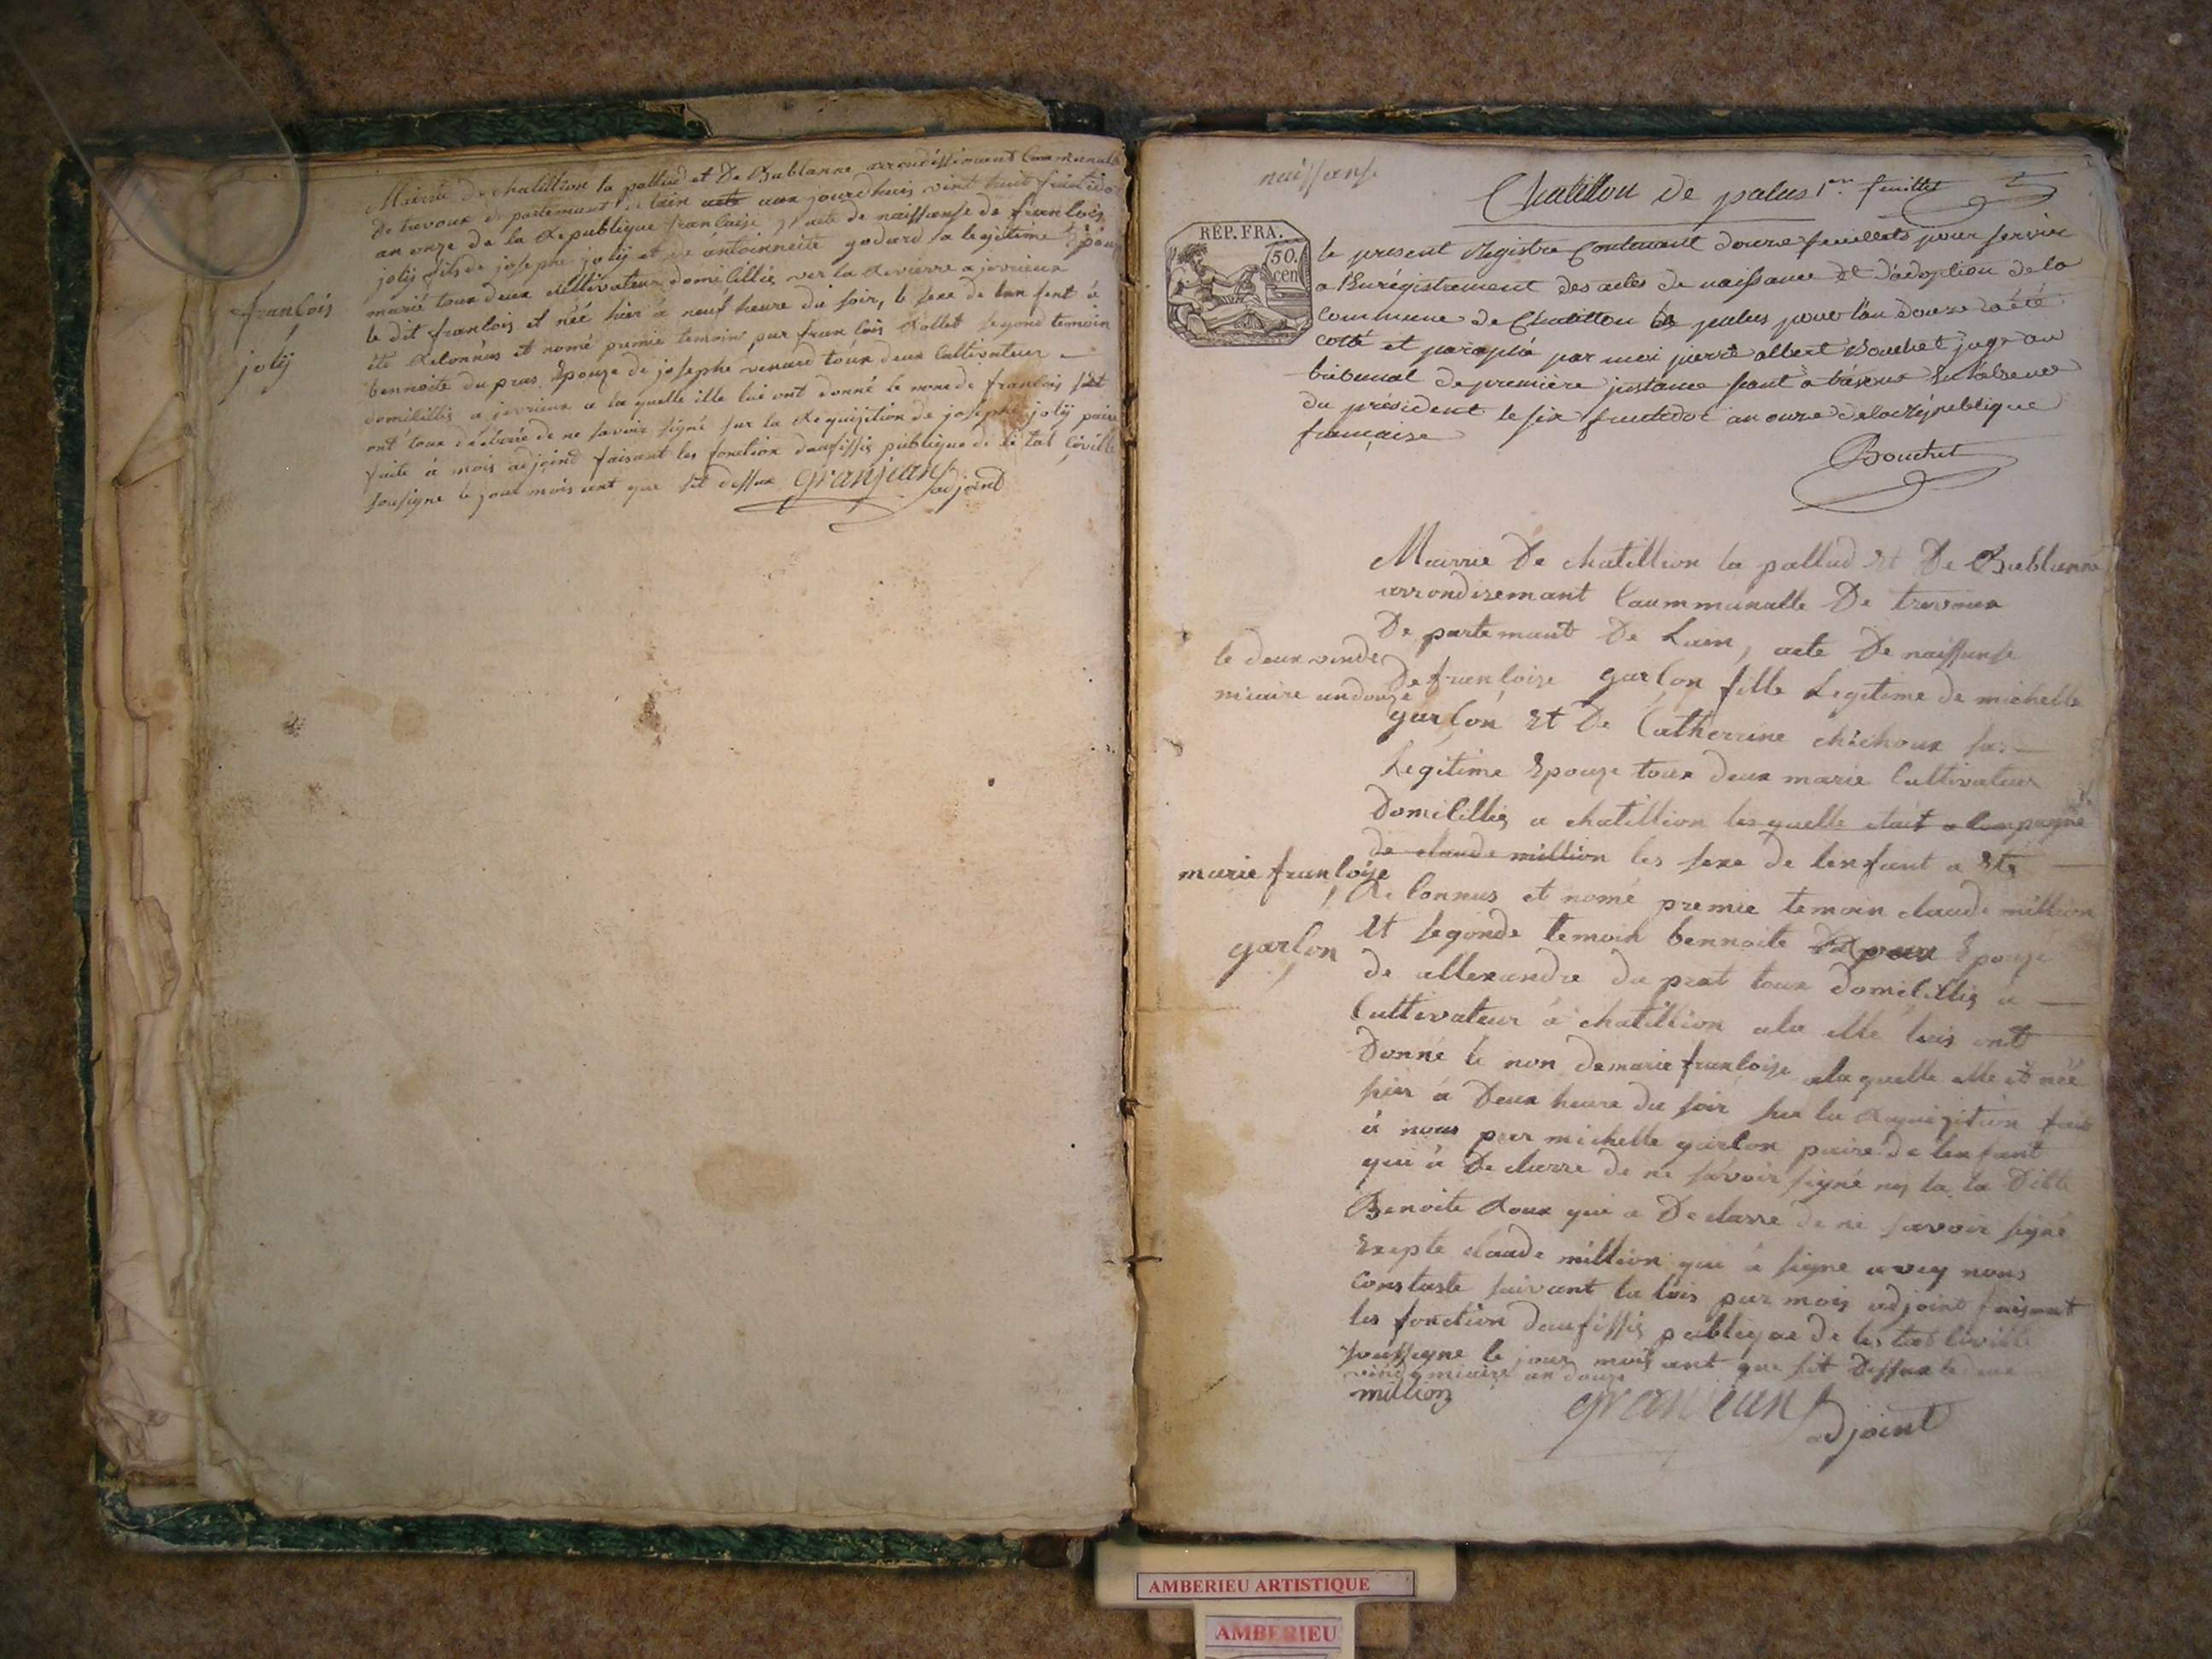 Mairie de chatillion la pallud et De Bublanne arrondissement Communalle
de trevoux departemant de lain acte aux jourdhuis vint huit fruictidor
an onze de la Republique francaise, acte de naissanse de francois
jolÿ fils de josephe jolÿ et de antoinneite godard sa legitime Epouze
marié toux deux Cultivateur domicilliés ver la Rivierre a jevrieux
le dit francois et néé hier à neuf heure du soir, le sexe de lenfent à
été Reconnus et nomé premie temoin par francois Rollet segond temoin
bennoite du pras Epouze de josephe venard toux deux Cultivateur
domicilliés a jevrieux a la quelle ille lui ont donné le nom de francois
ont toux déclarée de ne savoir signé sur la Requizition de josephe jolÿ paire
faite à mois adjoind faisant les fonction daufissié publique de le tat Civille
sousigne le jour mois ant que sit dessux Granjean
adjoint
francois
jolÿ
naissanse
Chatillon de palus 1er feuillet
RÉP. FRA.
50.
cen
le present Registre Contenant douze feuillets pour servir
a l'Enrégistrement des actes de naissance et d'adoption de la
commune de Chatillon la palus pour l'an douze a été
cotté et paraphé par moi pierre albert Bouchet juge au
tribunal de première instance séant à trévoux En l'absence
du président le six fructidor an onze de la République
française
Bouchet
Mairrie De chatillion la pallud Et De Bublanne
arrondisemant Caummunalle De trevoux
De partemant De Lain, acte De naissanse
le deux vinde
miaire an douze
De francoize garçon fille Legitime de michelle
garçon Et De Catherrine chichoux sa
Legitime Epouze toux deux marie Cultivateur
Domicilliés a chatillion les quelle etait a Compagné
de claude million les sexe de lenfant a Eté
marie francoize
garçon
Reconnus et nomé premie temoin claude million
Et segonde temoin bennoite Epouze
de allexandre du prat toux domicilliés a
Cultivateur à chatillion ala elle luis ont
Donné le non de marie francoize ala quelle elle et néé
hier à Deux heure du soir sur la Requizition fait
à nous par michelle garcon paire de lenfant
qui à De clarre de ne savoir signé ny la la Ditte
Benoite Roux qui a De clarre de ne savoir signé
Exepte claude million qui à signe avey nous
Constaste suivant la lois par mois adjoint faisant
les fonction daufissié publique de les tat Civille
soussigne le jour mois ant que sit Dessux le deux
vindemiaire an douze
million
granjean
adjoint
AMBERIEU ARTISTIQUE
AMBERIEU